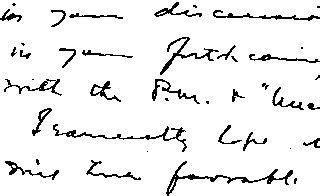 in your discussion
in your forthcoming
with the P.M. &
I earnestly hope
favorable